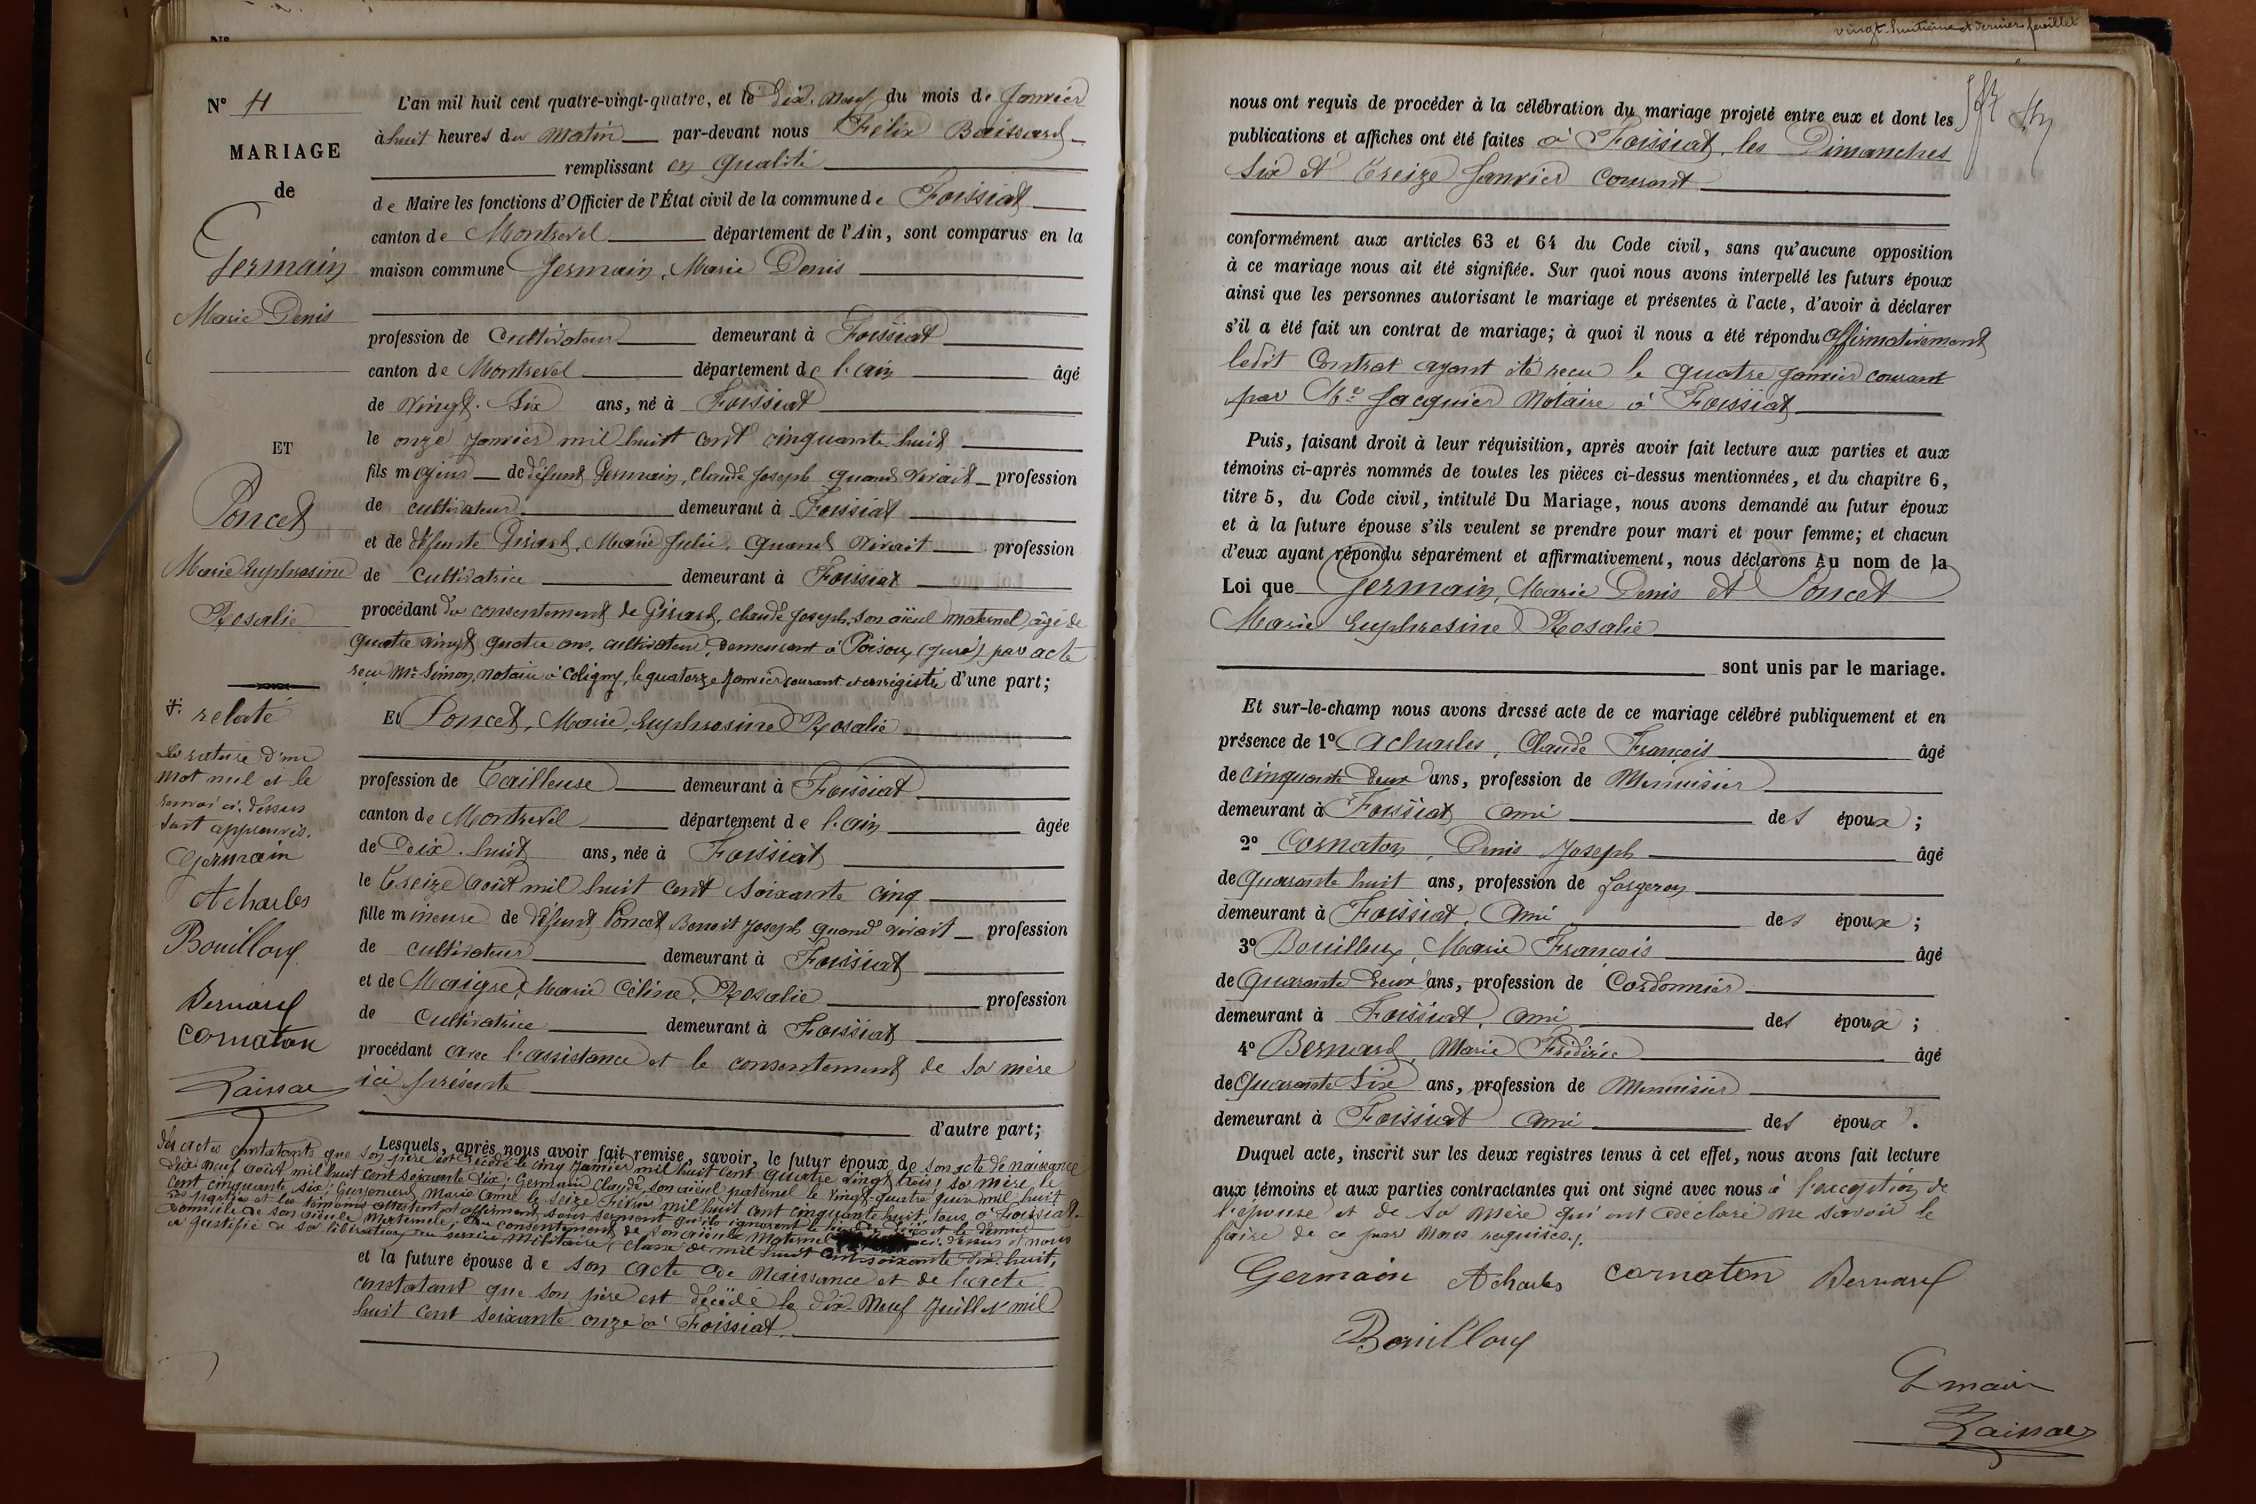 vingt-huitième et dernier feuillet
N° 4
MARIAGE
de
Germain
Marie Denis
ET
Poncet
Marie Euphrosine
Rosalie
relaté
La rature d'un
mot nul et le
renvoi ci-dessus
sont approuvés.
Germain
Acharles
Bouilloux
Bernard
Cornaton
L'an mil huit cent quatre-vingt-quatre, et le dix-neuf du mois de Janvier
à huit heures du matin par-devant nous Félix
remplissant en qualité
de Maire les fonctions d'Officier de l'État civil de la commune de Foissiat
canton de Montrevel département de l'Ain, sont comparus en la
maison commune Germain, Marie Denis
profession de cultivateur demeurant à Foissiat
canton de Montrevel département de l'ain âgé
de vingt-six ans, né à Foissiat
le onze janvier mil huit cent cinquante huit
fils majeur de défunt Germain, Claude Joseph quand vivait profession
de cultivateur demeurant à Foissiat
et de défunte Girard, Marie Julie, quand vivait profession
de cultivatrice demeurant à Foissiat
procédant du consentement de Girard, Claude Joseph, son aïeul maternel, âgé de
quatre vingt quatre ans, cultivateur, demeurant à Poisoux (Jura), par acte
reçu Me Simon, notaire à Coligny, le quatorze Janvier courant et enregistré d'une part;
Et Poncet, Marie Euphrosine Rosalie
profession de Tailleuse demeurant à Foissiat
canton de Montrevel département de l'ain âgée
de Dix-huit ans, née à Foissiat
le treize août mil huit cent soixante cinq
fille mineure de défunt Poncet Benoit Joseph quand vivait profession
de cultivateur demeurant à Foissiat
et de Maigret, Marie Céline, Rosalie profession
de cultivatrice demeurant à Foissiat
procédant avec l'assistance et le consentement de sa mère
ici présente
d'autre part;
Lesquels, après nous avoir fait remise, savoir, le futur époux de son acte de naissance
des actes constatants que son père est décédé le cinq Janvier mil huit cent quatre vingt trois; sa mère, le
dix-neuf août mil huit cent soixante dix; Germain Claude, son aïeul paternel le vingt-quatre juin mil huit
cent cinquante six; Marie Anne le seize Février mil huit cent cinquante huit, tous à Foissiat.
des parties et les témoins attestent et affirment sous serment qu'ils ignorent le lieu du décès et le dernier
domicile de son aïeule maternelle; du consentement de son aïeul maternel ci-dessus et nous
a justifié de sa libération du service militaire, classe de mil huit cent soixante dix-huit,
et la future épouse de son acte de Naissance et de l'acte
constatant que son père est décédé le dix-neuf Juillet mil
huit cent soixante onze à Foissiat.
nous ont requis de procéder à la célébration du mariage projeté entre eux et dont les
publications et affiches ont été faites à Foissiat, les Dimanches
six et treize Janvier courant
conformément aux articles 63 et 64 du Code civil, sans qu'aucune opposition
à ce mariage nous ait été signifiée. Sur quoi nous avons interpellé les futurs époux
ainsi que les personnes autorisant le mariage et présentes à l'acte, d'avoir à déclarer
s'il a été fait un contrat de mariage; à quoi il nous a été répondu affirmativement
ledit Contrat ayant été reçu le quatre janvier courant
par Me Jacquier Notaire à Foissiat
Puis, faisant droit à leur réquisition, après avoir fait lecture aux parties et aux
témoins ci-après nommés de toutes les pièces ci-dessus mentionnées, et du chapitre 6,
titre 5, du Code civil, intitulé Du Mariage, nous avons demandé au futur époux
et à la future épouse s'ils veulent se prendre pour mari et pour femme; et chacun
d'eux ayant répondu séparément et affirmativement, nous déclarons Au nom de la
Loi que Germain, Marie Denis et Poncet
Marie Euphrosine Rosalie
sont unis par le mariage.
Et sur-le-champ nous avons dressé acte de ce mariage célébré publiquement et en
présence de 1° Acharles, Claude François âgé
de cinquante deux ans, profession de Menuisier
demeurant à Foissiat ami des époux;
2° Cornaton, Denis Joseph âgé
de quarante huit ans, profession de forgeron
demeurant à Foissiat, ami des époux;
3° Bouilloux, Marie François âgé
de quarante deux ans, profession de Cordonnier
demeurant à Foissiat, ami des époux;
4° Bernard, Marie Frédéric âgé
de quarante six ans, profession de Menuisier
demeurant à Foissiat ami des époux.
Duquel acte, inscrit sur les deux registres tenus à cet effet, nous avons fait lecture
aux témoins et aux parties contractantes qui ont signé avec nous à l'exception de
l'épouse et de sa mère qui ont déclaré ne savoir le
faire de ce par nous requises.
Germain Acharles Cornaton Bernard
Bouilloux